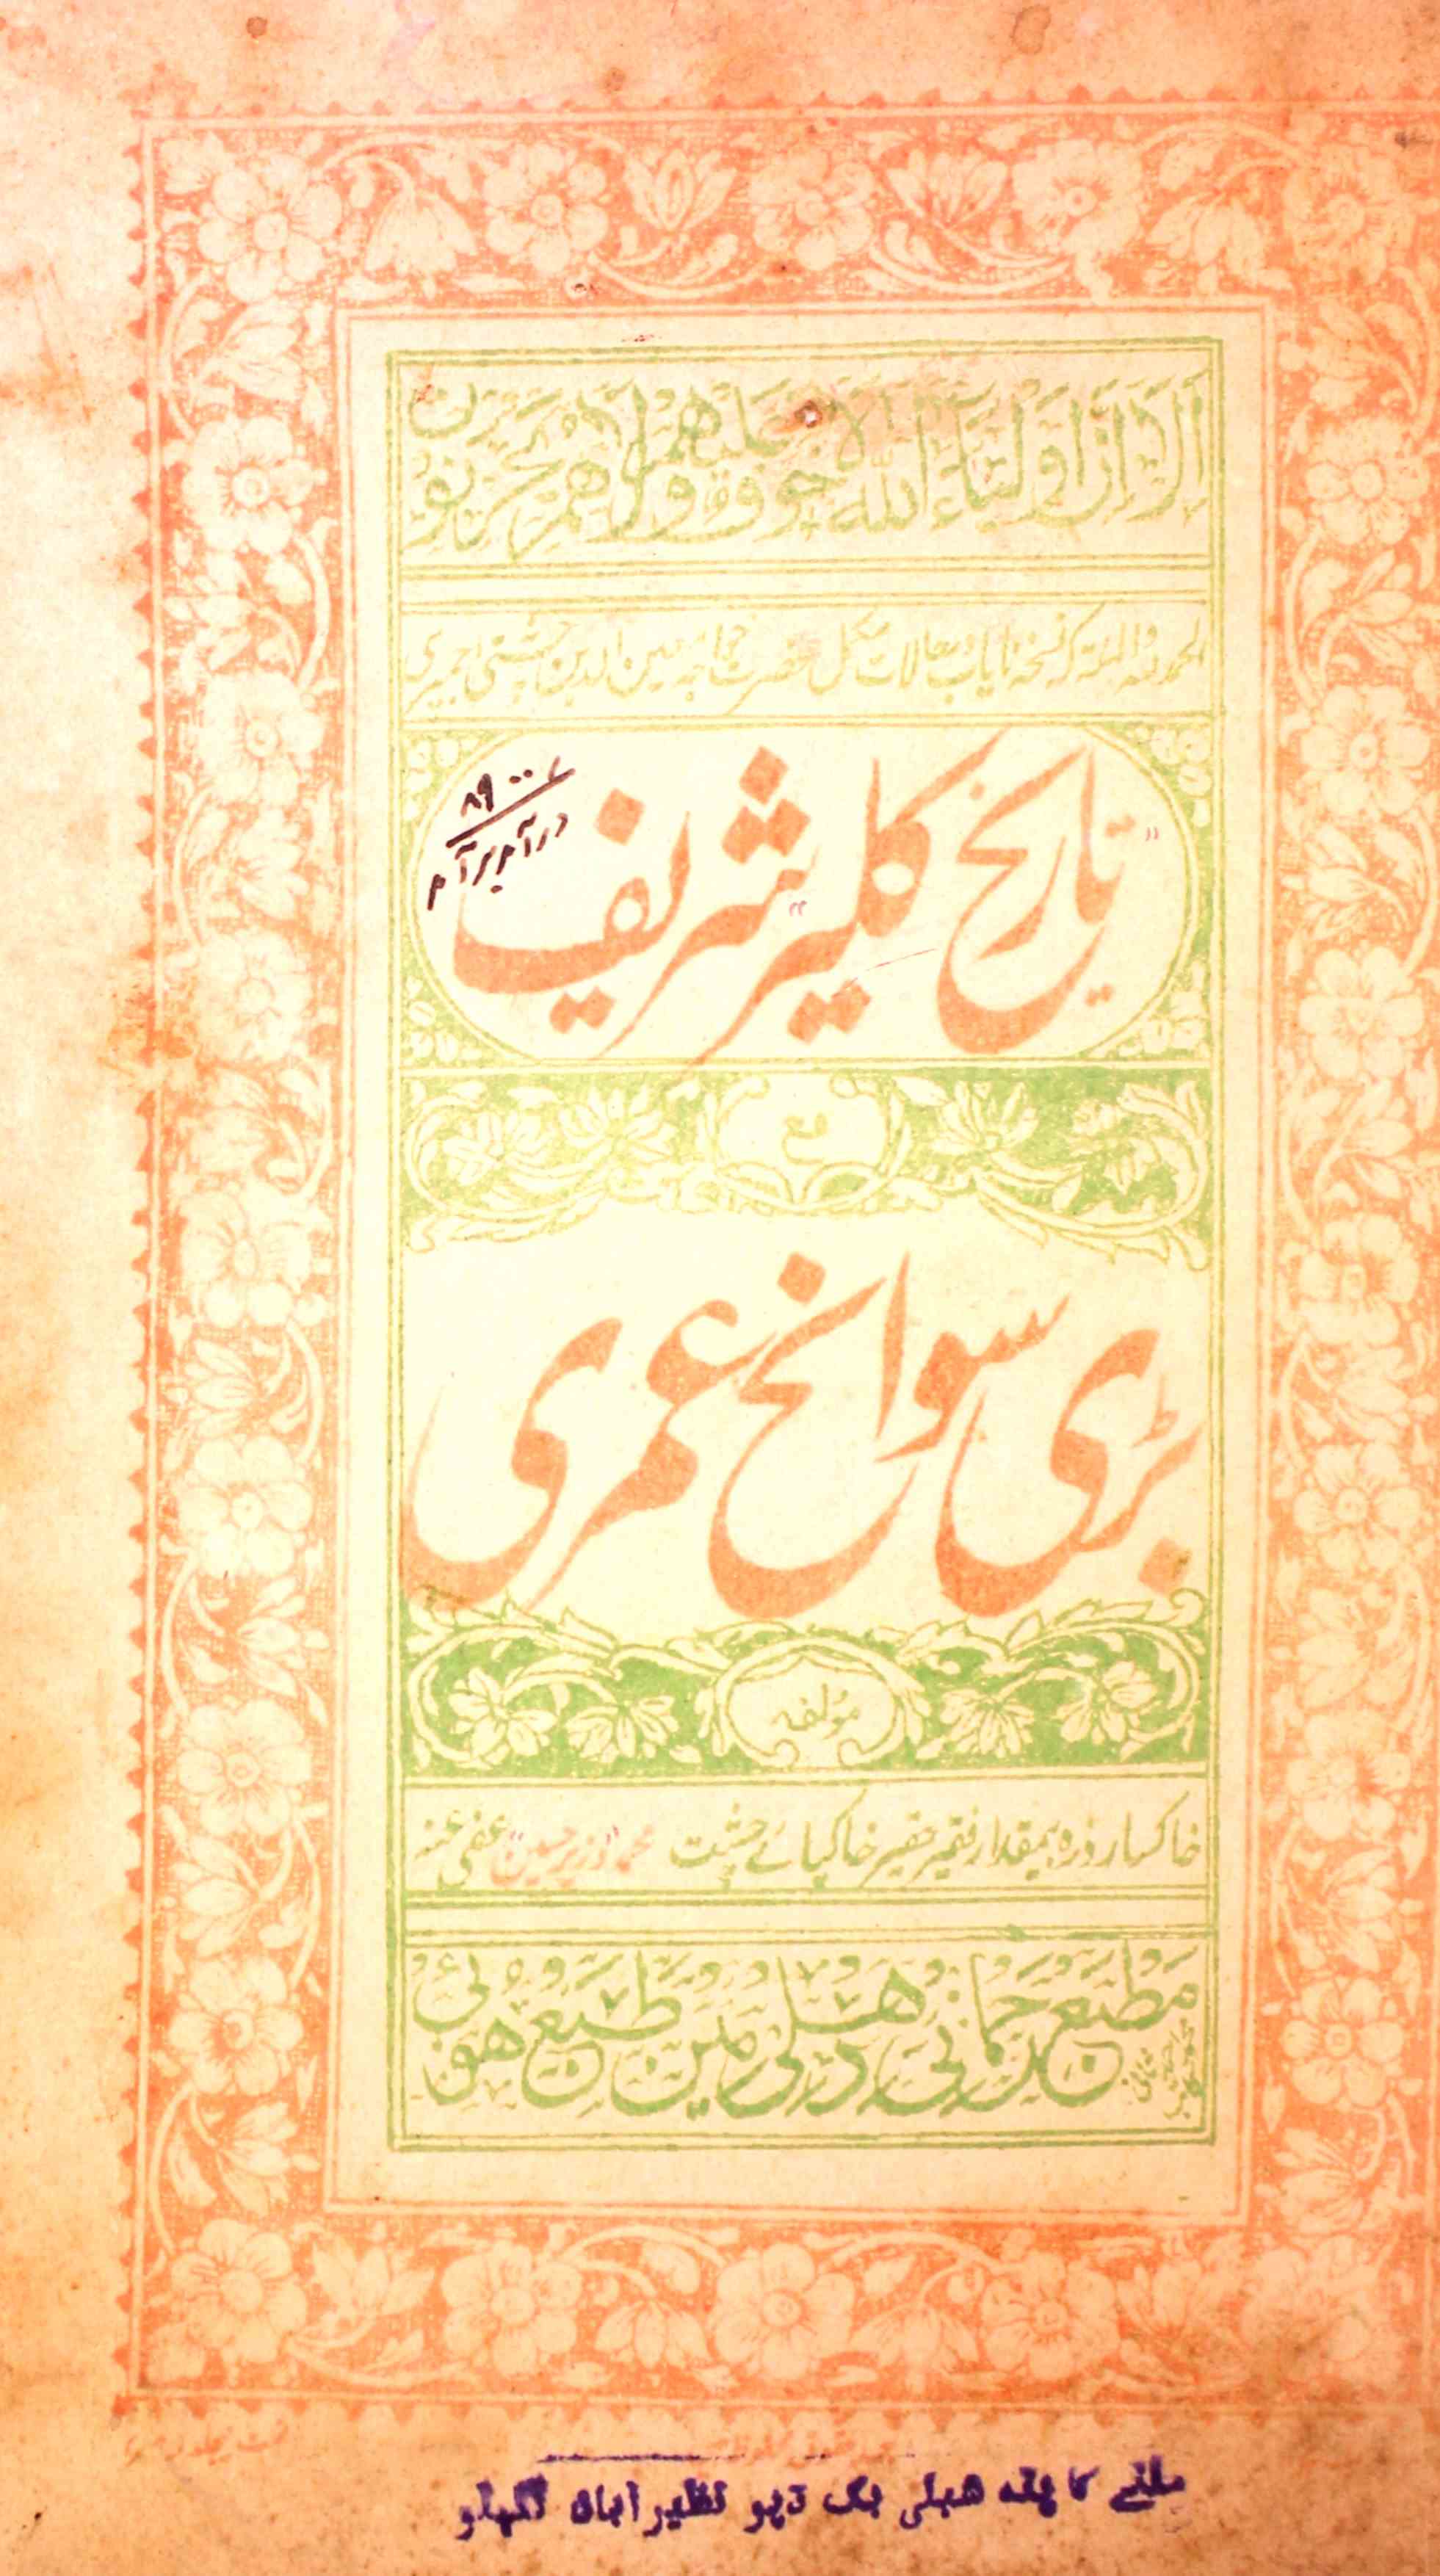 اَلَا اِنَّ اَوْلِيَاءَ اللّٰهِ لَا خَوْفٌ عَلَيْهِمْ وَلَا هُمْ يَحْزَنُوْنَ
الحمد للہ والمنۃ کہ نسخۂ نایاب بحالات مکمل حضرت خواجہ معین الدین چشتی اجمیری
تاریخ کلیر شریف
۸۹۰۰۷
درآمد برآمد
مع
بڑی سوانح عمری
مؤلفہ
خاکسار ذرہ بیمقدار فقیر حقیر خاکپائے چشت محمد "وزیر حسین" عفی عنہ
مَطْبَع رَحْمَانِی دِهْلِی مِیْن طَبَع هُوْئِی
ملنے کا پتہ شبلی بک ڈپو نظیرآباد لکھنؤ